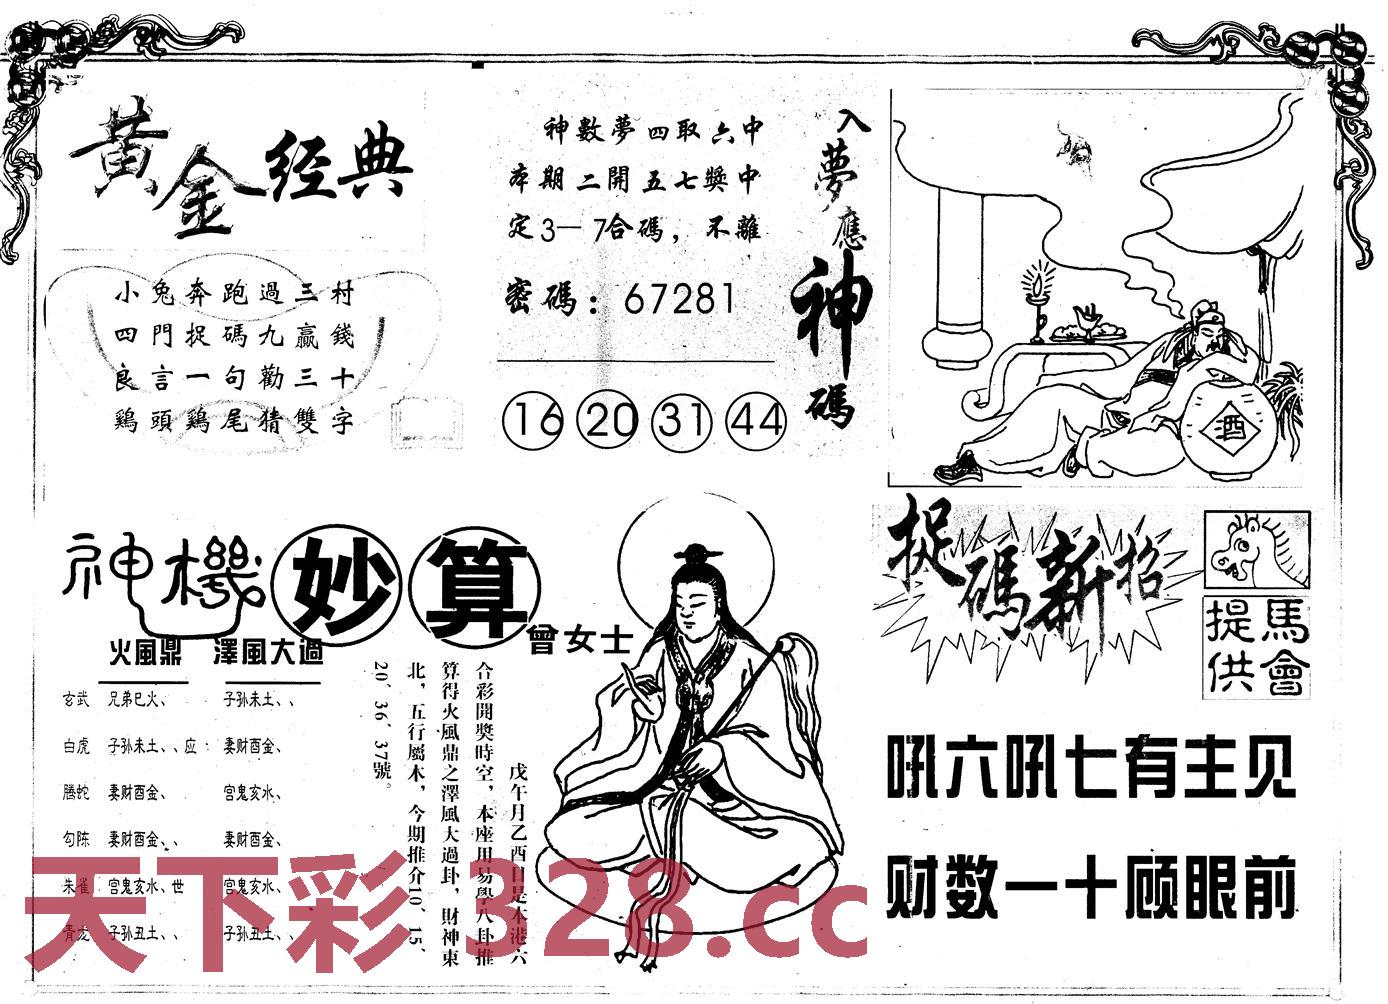 黄金经典
小兔奔跑過三村
四門捉碼九贏錢
良言一句勸三十
鷄頭鷄尾猜雙字
神數夢四取六中
本期二開五七獎中
定3—7合碼，不離
密碼：67281
16 20 31 44
入夢應神碼
酒
神機妙算
曾女士
火風鼎 澤風大過
玄武 兄弟巳火、 子孙未土、、
白虎 子孙未土、、应： 妻财酉金、
腾蛇 妻财酉金、 宫鬼亥水、
勾陈 妻财酉金、、 妻财酉金、
朱雀 宫鬼亥水、世 宫鬼亥水、
青龙 子孙丑土、、 子孙丑土、、
戊午月乙酉日是本港六
合彩開獎時空，本座用易學八卦推
算得火風鼎之澤風大過卦，財神東
北，五行屬木，今期推介10、15、
20、36、37號。
捉碼新招
馬會
提供
吼六吼七有主见
财数一十顾眼前
天下彩 328.cc